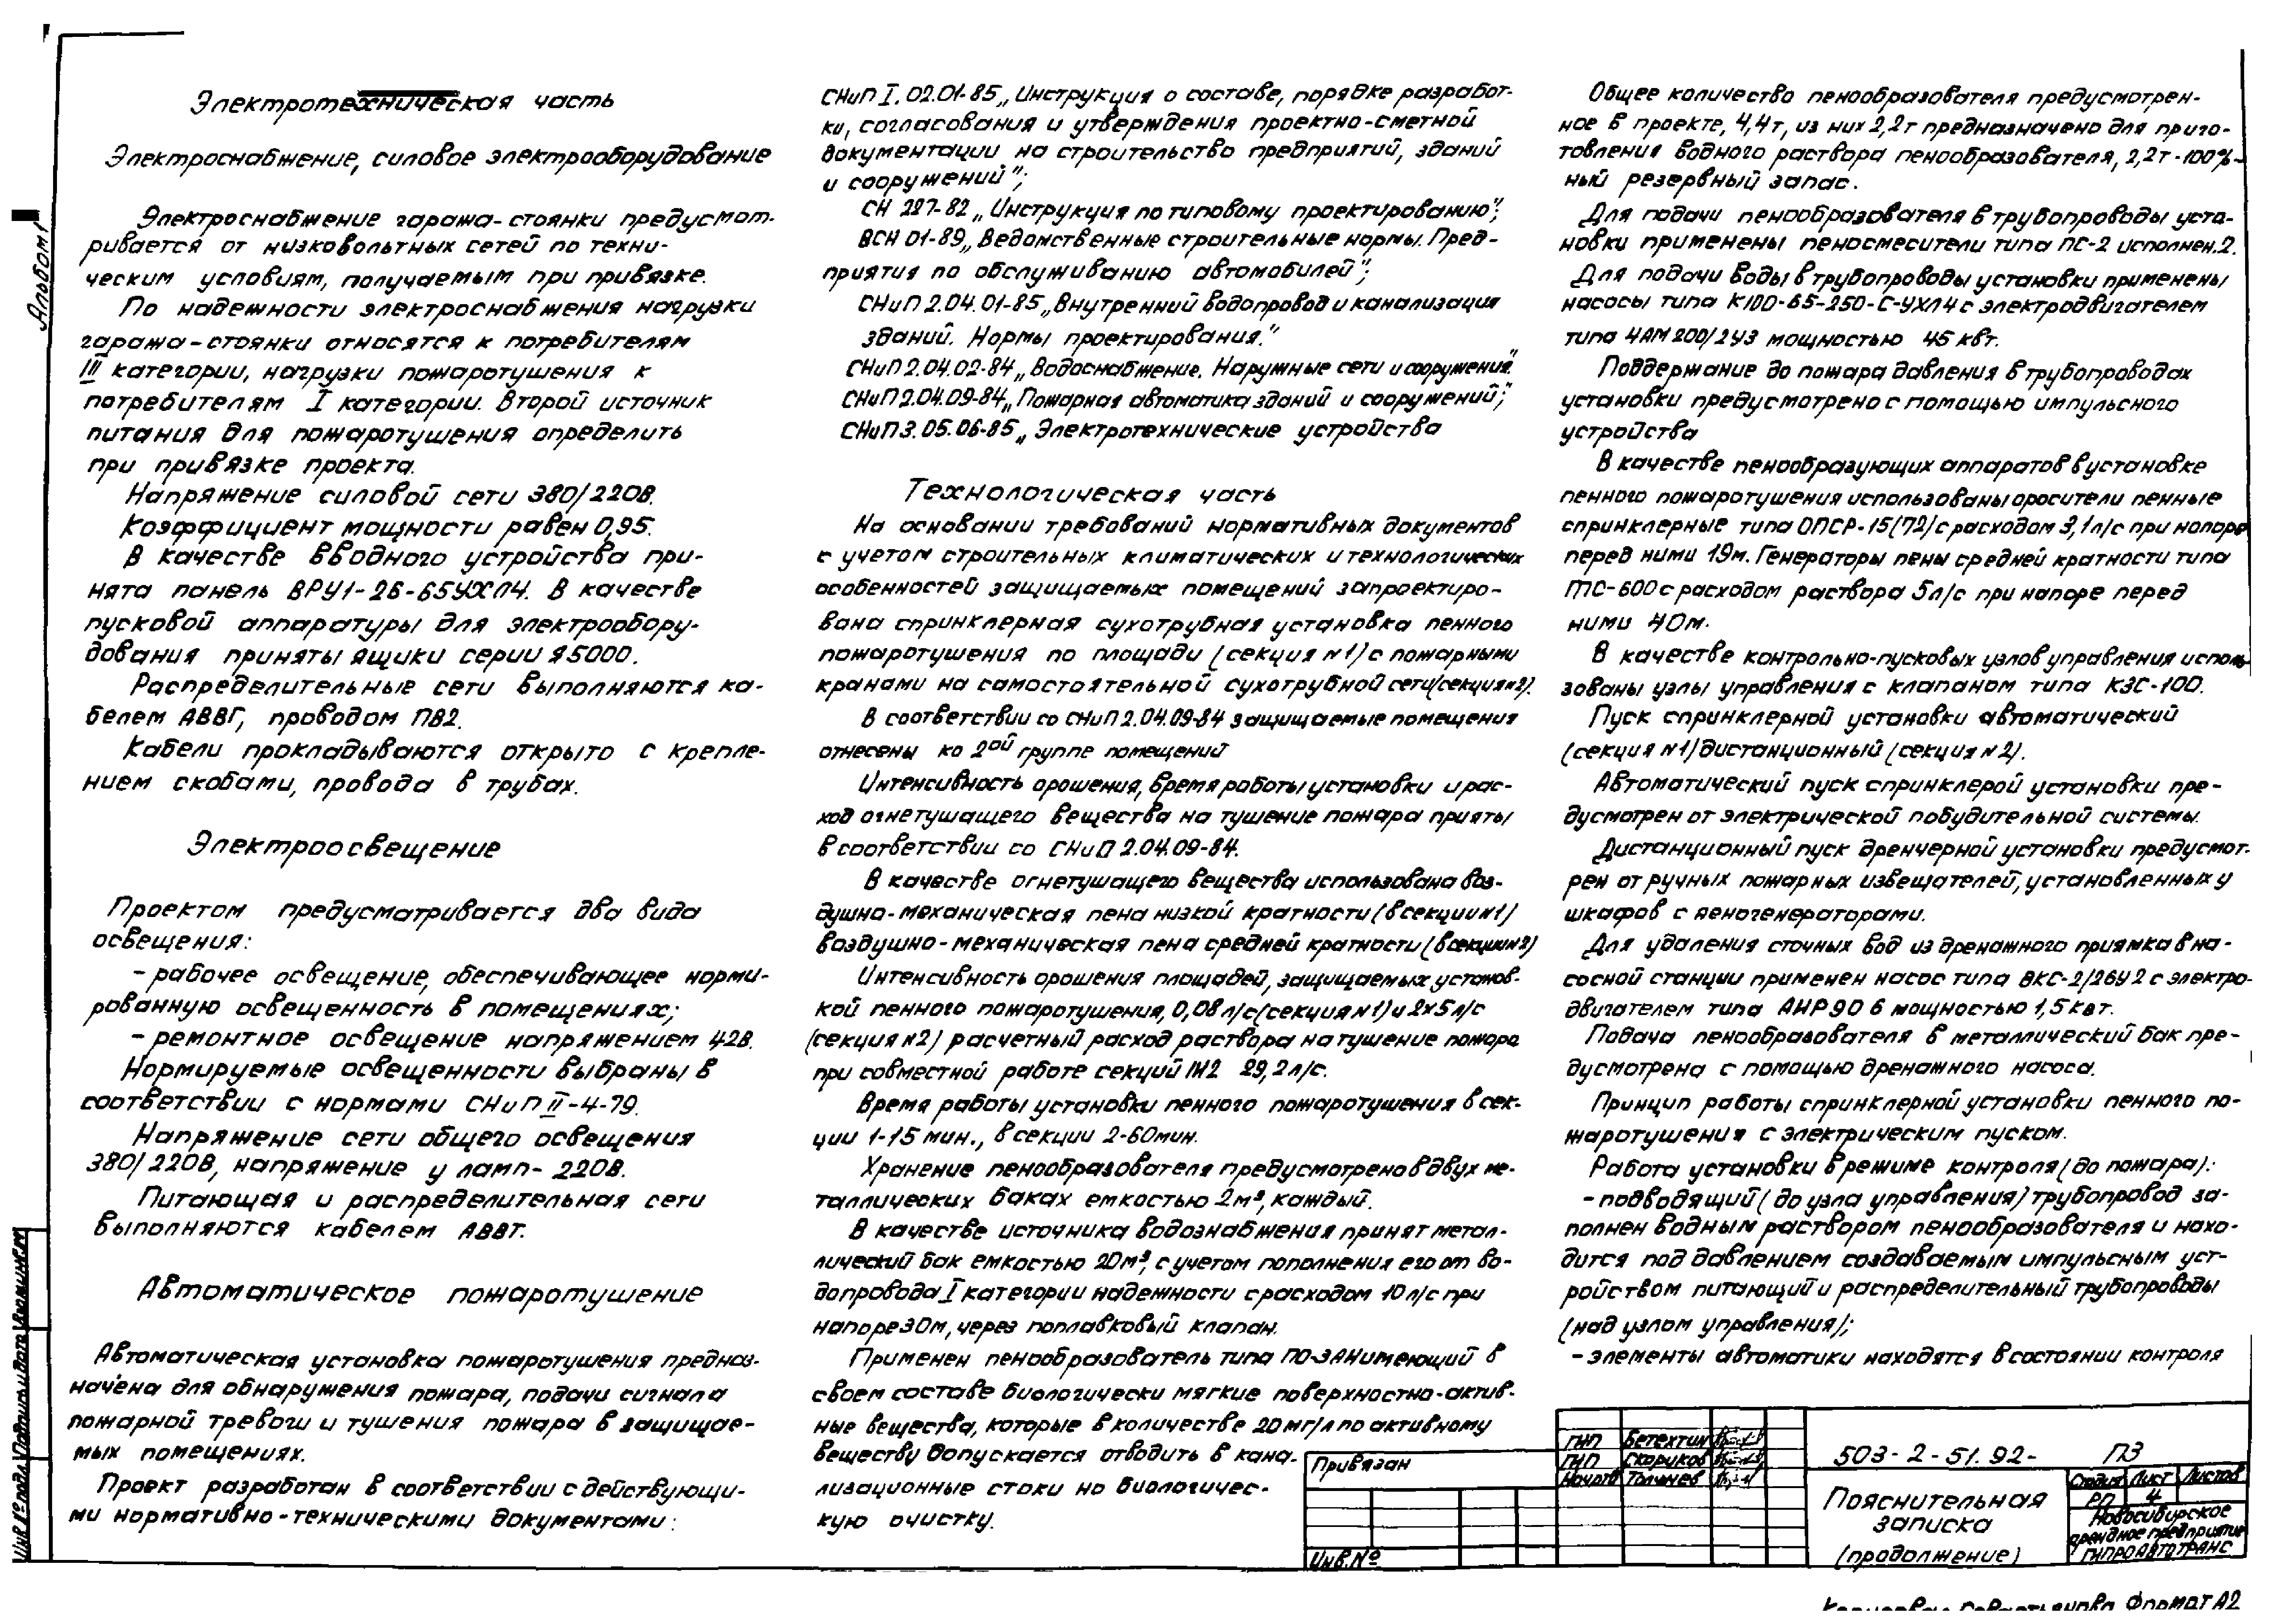 Альбом 1
Электротехническая часть
Электроснабжение, силовое электрооборудование
Электроснабжение гаража-стоянки предусмот-
ривается от низковольтных сетей по техни-
ческим условиям, получаемым при привязке.
По надежности электроснабжения нагрузки
гаража-стоянки относятся к потребителям
III категории, нагрузки пожаротушения к
потребителям I категории. Второй источник
питания для пожаротушения определить
при привязке проекта.
Напряжение силовой сети 380/220В.
Коэффициент мощности равен 0,95.
В качестве вводного устройства при-
нята панель ВРУ1-26-65УХЛ4. В качестве
пусковой аппаратуры для электрообору-
дования приняты ящики серии Я5000.
Распределительные сети выполняются ка-
белем АВВГ, проводом ПВ2.
Кабели прокладываются открыто с крепле-
нием скобами, провода в трубах.
Электроосвещение
Проектом предусматривается два вида
освещения:
- рабочее освещение, обеспечивающее норми-
рованную освещенность в помещениях;
- ремонтное освещение напряжением 42В.
Нормируемые освещенности выбраны в
соответствии с нормами СНиП II-4-79.
Напряжение сети общего освещения
380/220В, напряжение у ламп- 220В.
Питающая и распределительная сети
выполняются кабелем АВВГ.
Автоматическое пожаротушение
Автоматическая установка пожаротушения предназ-
начена для обнаружения пожара, подачи сигнала
пожарной тревоги и тушения пожара в защищае-
мых помещениях.
Проект разработан в соответствии с действующи-
ми нормативно-техническими документами:
СНиП I.02.01-85 „Инструкция о составе, порядке разработ-
ки, согласования и утверждения проектно-сметной
документации на строительство предприятий, зданий
и сооружений";
СН 227-82 „Инструкция по типовому проектированию";
ВСН 01-89 „Ведомственные строительные нормы. Пред-
приятия по обслуживанию автомобилей";
СНиП 2.04.01-85 „Внутренний водопровод и канализация
зданий. Нормы проектирования."
СНиП 2.04.02-84 „Водоснабжение. Наружные сети и сооружения"
СНиП 2.04.09-84 „Пожарная автоматика зданий и сооружений";
СНиП 3.05.06-85 „Электротехнические устройства
Технологическая часть
На основании требований нормативных документов
с учетом строительных климатических и технологических
особенностей защищаемых помещений запроектиро-
вана спринклерная сухотрубная установка пенного
пожаротушения по площади (секция N1) с пожарными
кранами на самостоятельной сухотрубной сети (секция N2).
В соответствии со СНиП 2.04.09-84 защищаемые помещения
отнесены ко 2ой группе помещений
Интенсивность орошения, время работы установки и рас-
ход огнетушащего вещества на тушение пожара прияты
в соответствии со СНиП 2.04.09-84.
В качестве огнетушащего вещества использована воз-
душно-механическая пена низкой кратности (в секции N1)
воздушно-механическая пена средней кратности (в секции N2)
Интенсивность орошения площадей, защищаемых установ-
кой пенного пожаротушения, 0,08 л/с (секция N1) и 2х5 л/с
(секция N2) расчетный расход раствора на тушение пожара
при совместной работе секций 1и2 29,2 л/с.
Время работы установки пенного пожаротушения в сек-
ции 1-15 мин., в секции 2-60мин.
Хранение пенообразователя предусмотрено в двух ме-
таллических баках емкостью 2м³, каждый.
В качестве источника водоснабжения принят метал-
лический бак емкостью 20м³, с учетом пополнения его от во-
допровода I категории надежности с расходом 10 л/с при
напоре 30м, через поплавковый клапан.
Применен пенообразователь типа ПО-3АН имеющий в
своем составе биологически мягкие поверхностно-актив-
ные вещества, которые в количестве 20 мг/л по активному
веществу допускается отводить в кана-
лизационные стоки на биологичес-
кую очистку.
Общее количество пенообразователя предусмотрен-
ное в проекте, 4,4т, из них 2,2т предназначено для приго-
товления водного раствора пенообразователя, 2,2т-100%-
ный резервный запас.
Для подачи пенообразователя в трубопроводы уста-
новки применены пеносмесители типа ПС-2 исполнен.2.
Для подачи воды в трубопроводы установки применены
насосы типа К100-65-250-С-УХЛ4 с электродвигателем
типа 4АМ200/2У3 мощностью 45 квт.
Поддержание до пожара давления в трубопроводах
установки предусмотрено с помощью импульсного
устройства
В качестве пенообразующих аппаратов в установке
пенного пожаротушения использованы оросители пенные
спринклерные типа ОПСР-15(72) с расходом 3,1 л/с при напоре
перед ними 19м. Генераторы пены средней кратности типа
ГПС-600 с расходом раствора 5 л/с при напоре перед
ними 40м.
В качестве контрольно-пусковых узлов управления исполь-
зованы узлы управления с клапаном типа КЗС-100.
Пуск спринклерной установки автоматический
(секция N1) дистанционный (секция N2).
Автоматический пуск спринклерой установки пре-
дусмотрен от электрической побудительной системы.
Дистанционный пуск дренчерной установки предусмот-
рен от ручных пожарных извещателей, установленных у
шкафов с пеногенераторами.
Для удаления сточных вод из дренажного приямка в на-
сосной станции применен насос типа ВКС-2/26У2 с электро-
двигателем типа АИР90 6 мощностью 1,5 квт.
Подача пенообразователя в металлический бак пре-
дусмотрена с помощью дренажного насоса.
Принцип работы спринклерной установки пенного по-
жаротушения с электрическим пуском.
Работа установки в режиме контроля (до пожара):
- подводящий (до узла управления) трубопровод за-
полнен водным раствором пенообразователя и нахо-
дится под давлением создаваемым импульсным уст-
ройством питающий и распределительный трубопроводы
(над узлом управления);
- элементы автоматики находятся в состоянии контроля
Привязан
Инв.№
ГИП Бетехтин
ГИП Скориков
Нач.отд Толчнев
503-2-51.92- ПЗ
Пояснительная
записка
(продолжение)
Стадия Лист Листов
РП 4
Новосибирское
арендное предприятие
ГИПРОАВТОТРАНС
Инв.№ подл. Подпись и дата Взам.инв.№
Формат А2